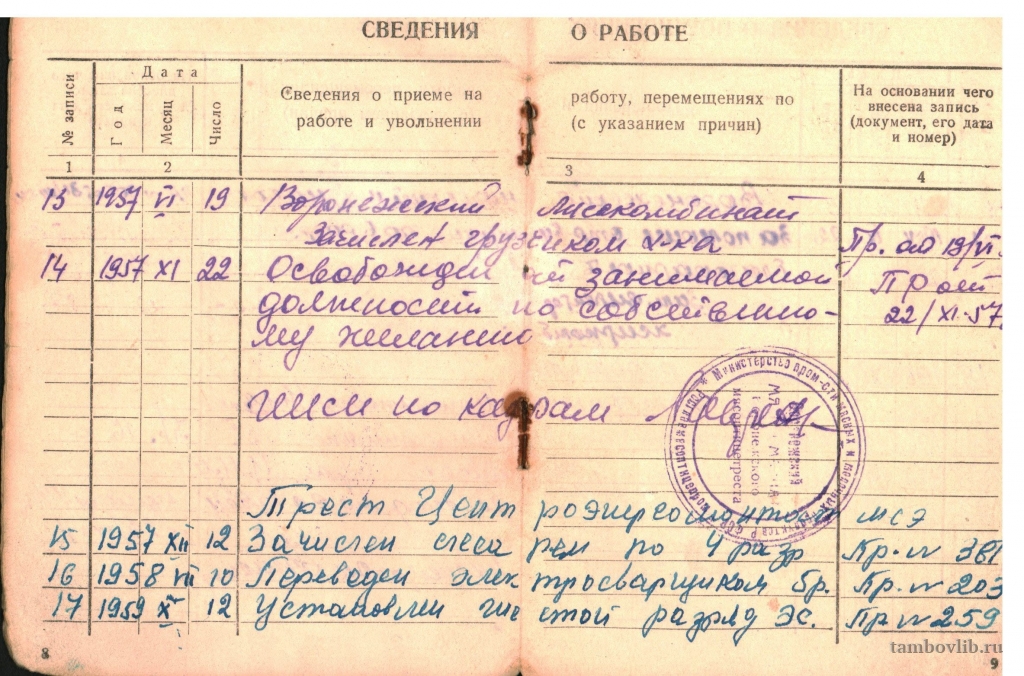 СВЕДЕНИЯ О РАБОТЕ
№ записи
Дата
Год
Месяц
Число
Сведения о приеме на работу, перемещениях по
работе и увольнении (с указанием причин)
На основании чего
внесена запись
(документ, его дата
и номер)
1 2 3 4
13 1957 VI 19 Воронежский мясокомбинат
Зачислен грузчиком х-ка Пр. от 19/VI
14 1957 XI 22 Освобожден занимаемой Пр от
должности по собственно- 22/XI-57
му желанию
по кадрам
Министерство пром-сти мясных и молочных
Трест Центроэнергомонтаж МСЭ
15 1957 XII 12 Зачислен слесарем по 4 разр Пр. № 381
16 1958 VII 10 Переведен электросварщиком бр. Пр. № 203
17 1959 X 12 Установлен шестой разряд эс. Пр № 259
8
9
tambovlib.ru